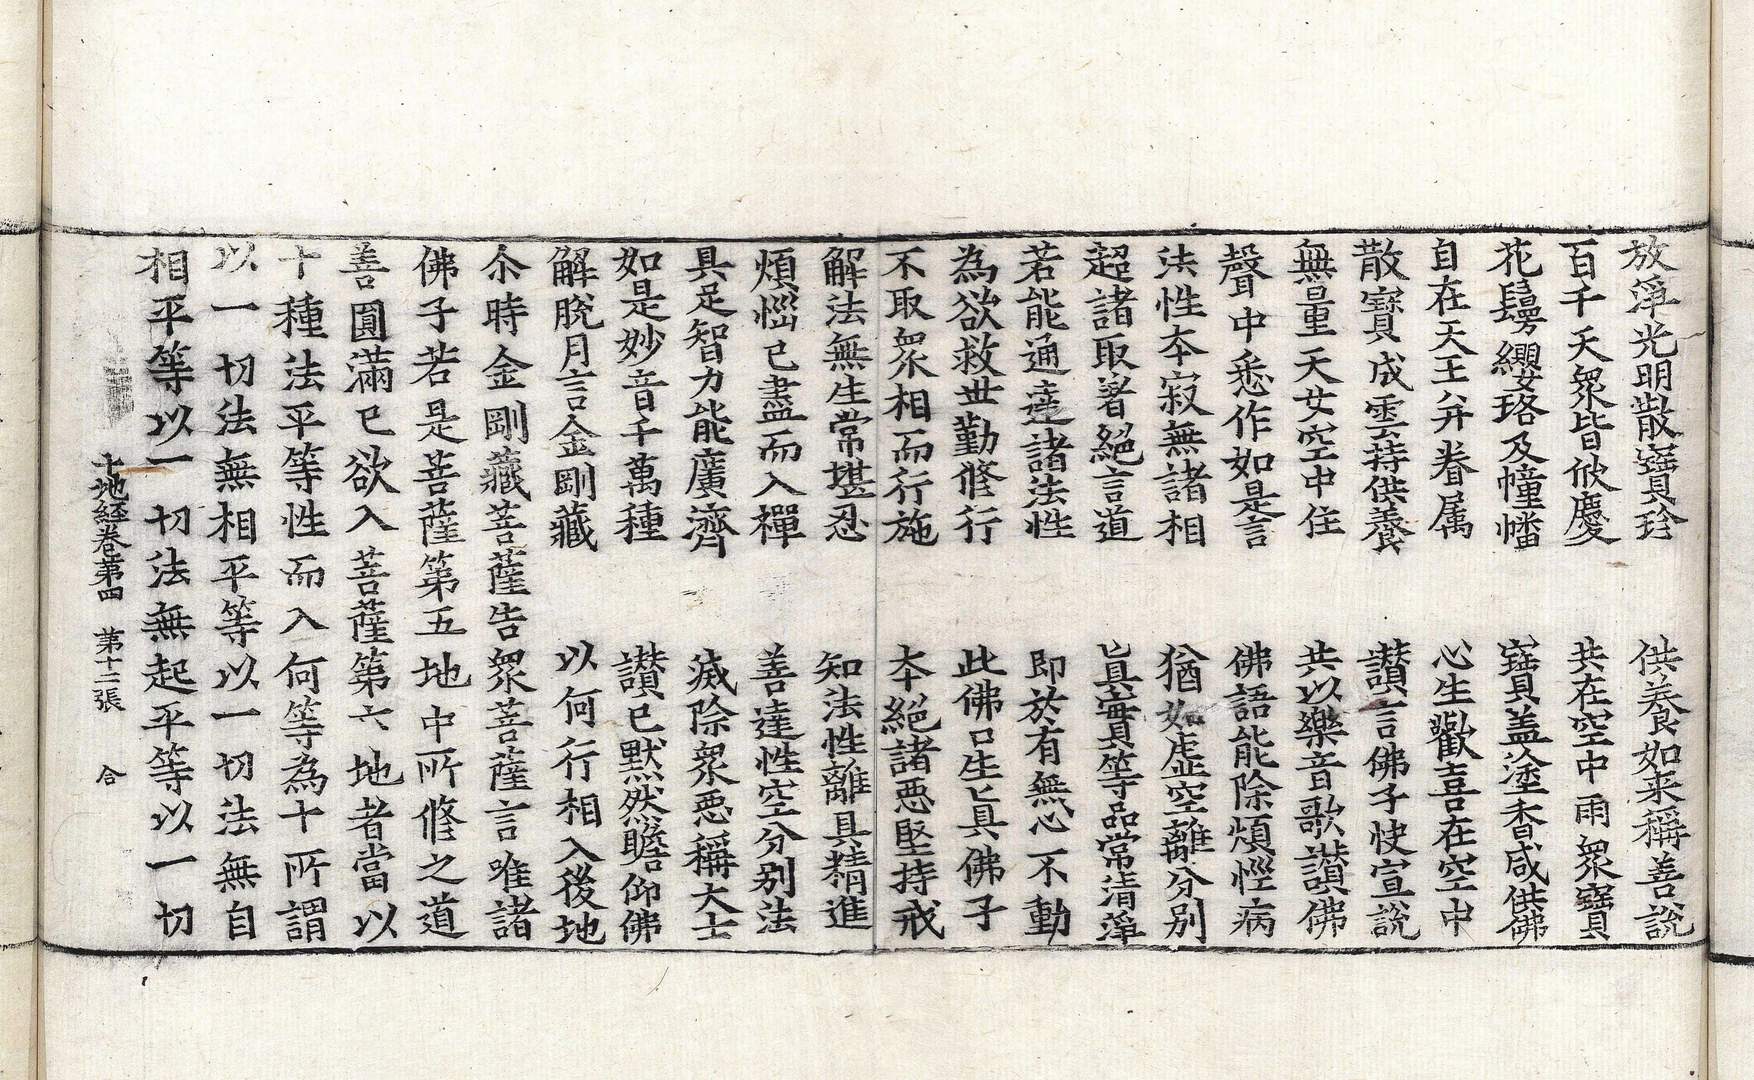 放淨光明散寶珍　供養如来稱善說
百千天衆皆欣慶　共在空中雨衆寶
花鬘纓珞及幢幡　寶盖塗香咸供佛
自在天王并眷属　心生歡喜在空中
散寶成雲持供養　讃言佛子快宣說
無量天女空中住　共以樂音歌讃佛
聲中悉作如是言　佛語能除煩惱病
法性本寂無諸相　猶如虛空離分別
超諸取著絕言道　真實等品常清淨
若能通達諸法性　即於有無心不動
為欲救世勤修行　此佛口生真佛子
不取衆相而行施　本絕諸惡堅持戒
解法無生常堪忍　知法性離具精進
煩惱已盡而入禪　善達性空分別法
具足智力能廣濟　滅除衆惡稱大士
如是妙音千萬種　讃已默然瞻仰佛
解脫月言金剛藏　以何行相入後地
尒時金剛藏菩薩告衆菩薩言唯諸
佛子若是菩薩第五地中所修之道
善圓滿已欲入菩薩第六地者當以
十種法平等性而入何等為十所謂
以一切法無相平等以一切法無自
相平等以一切法無起平等以一切
十地経卷第四　第十二張　合